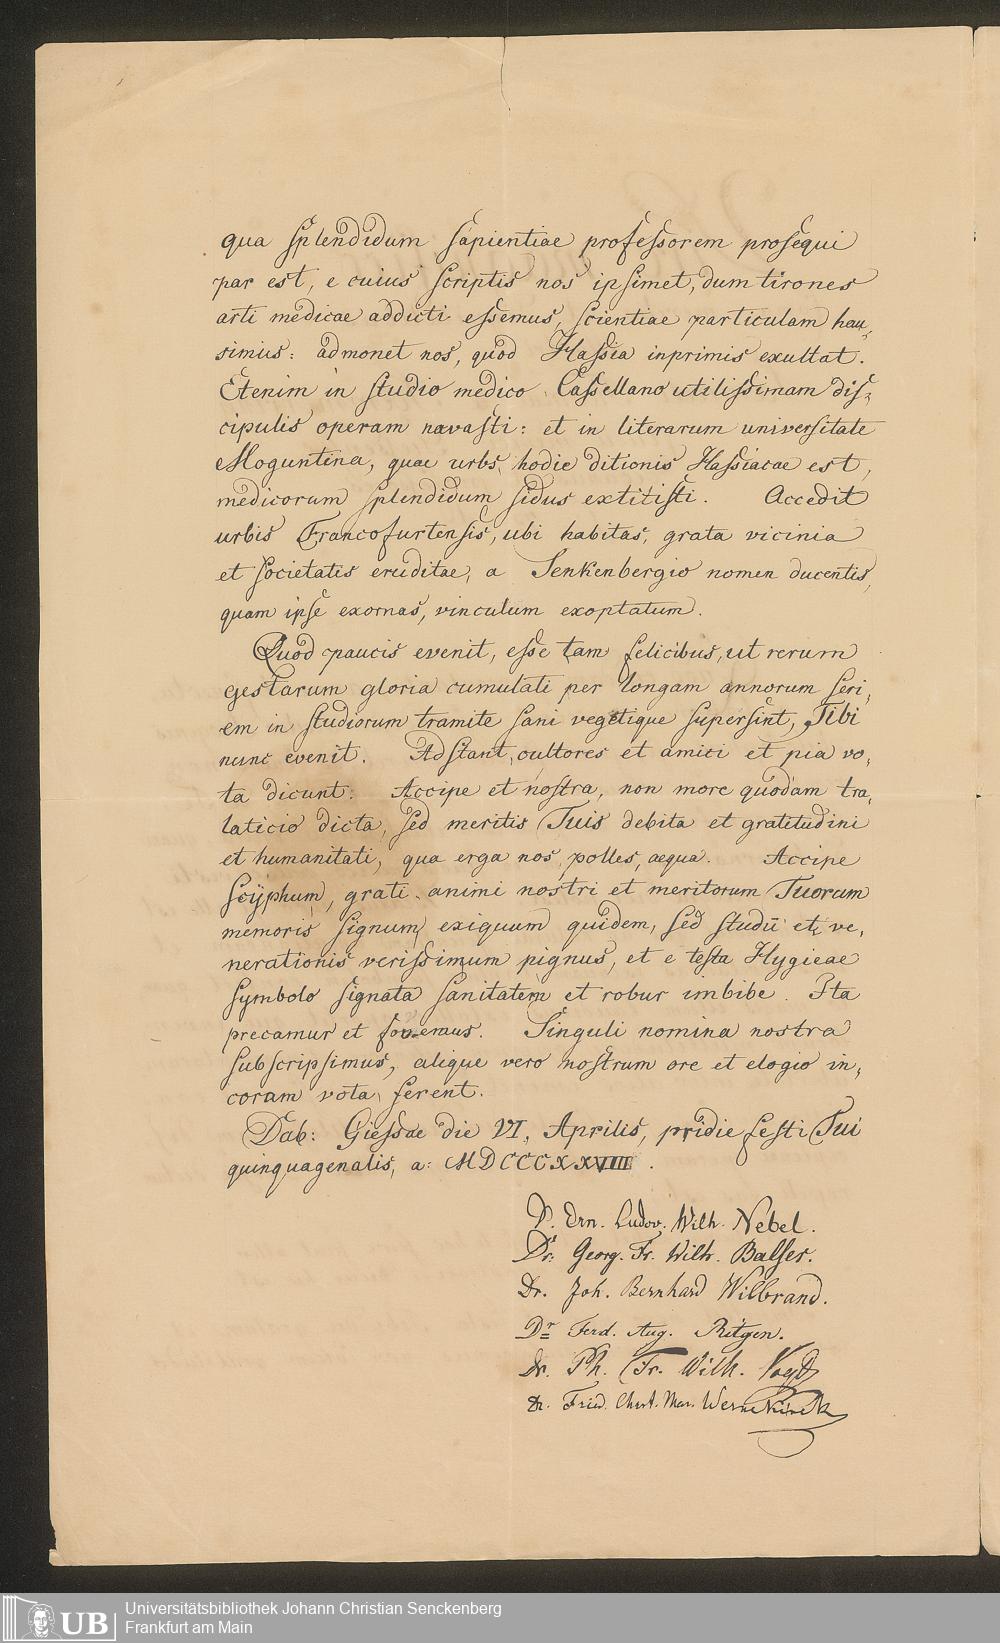 qua splendidum sapientiae professorem prosequi
par est, e cuius scriptis nos ipsimet, dum tirones
arti medicae addicti essemus, scientiae particulam hau-
simus: admonet nos, quod Hassia inprimis exultat.
Etenim in studio medico Cassellano utilissimam dis-
cipulis operam navasti: et in literarum universitate
Moguntina, quae urbs hodie ditionis Hassiacae est,
medicorum splendidum sidus extitisti. Accedit
urbis Francofurtensis, ubi habitas, grata vicinia
et societatis eruditae, a Senkenbergio nomen ducentis,
quam ipse exornas, vinculum exoptatum.
Quod paucis evenit, esse tam felicibus, ut rerum
gestarum gloria cumulati per longam annorum seri-
em in studiorum tramite sani vegetique supersint, Tibi
nunc evenit. Adstant cultores et amici et pia vo-
ta dicunt: Accipe et nostra, non more quodam tra-
laticio dicta, sed meritis Tuis debita et gratitudini
et humanitati, qua erga nos polles, aequa. Accipe
Scÿphum, grati animi nostri et meritorum Tuorum
memoris signum, exiguum quidem, sed studii et ve-
nerationis verissimum pignus, et e testa Hygieae
symbolo signata sanitatem et robur imbibe. Ita
precamur et fovemus. Singuli nomina nostra
subscripsimus, alique vero nostrum ore et elogio in-
coram vota ferent.
Dab: Giessae die VI. Aprilis, pridie festi Tui
quinquagenalis, a: MDCCCXXVIII.
D. Ern. Ludov. Wilh. Nebel.
Dr. Georg. Fr. Wilh. Balser.
Dr. Joh. Bernhard Wilbrand.
Dr Ferd. Aug. Ritgen.
Dr. Ph. Fr. Wilh. Vogt
Dr. Fried. Christ. Wernekinck
UB
Universitätsbibliothek Johann Christian Senckenberg
Frankfurt am Main